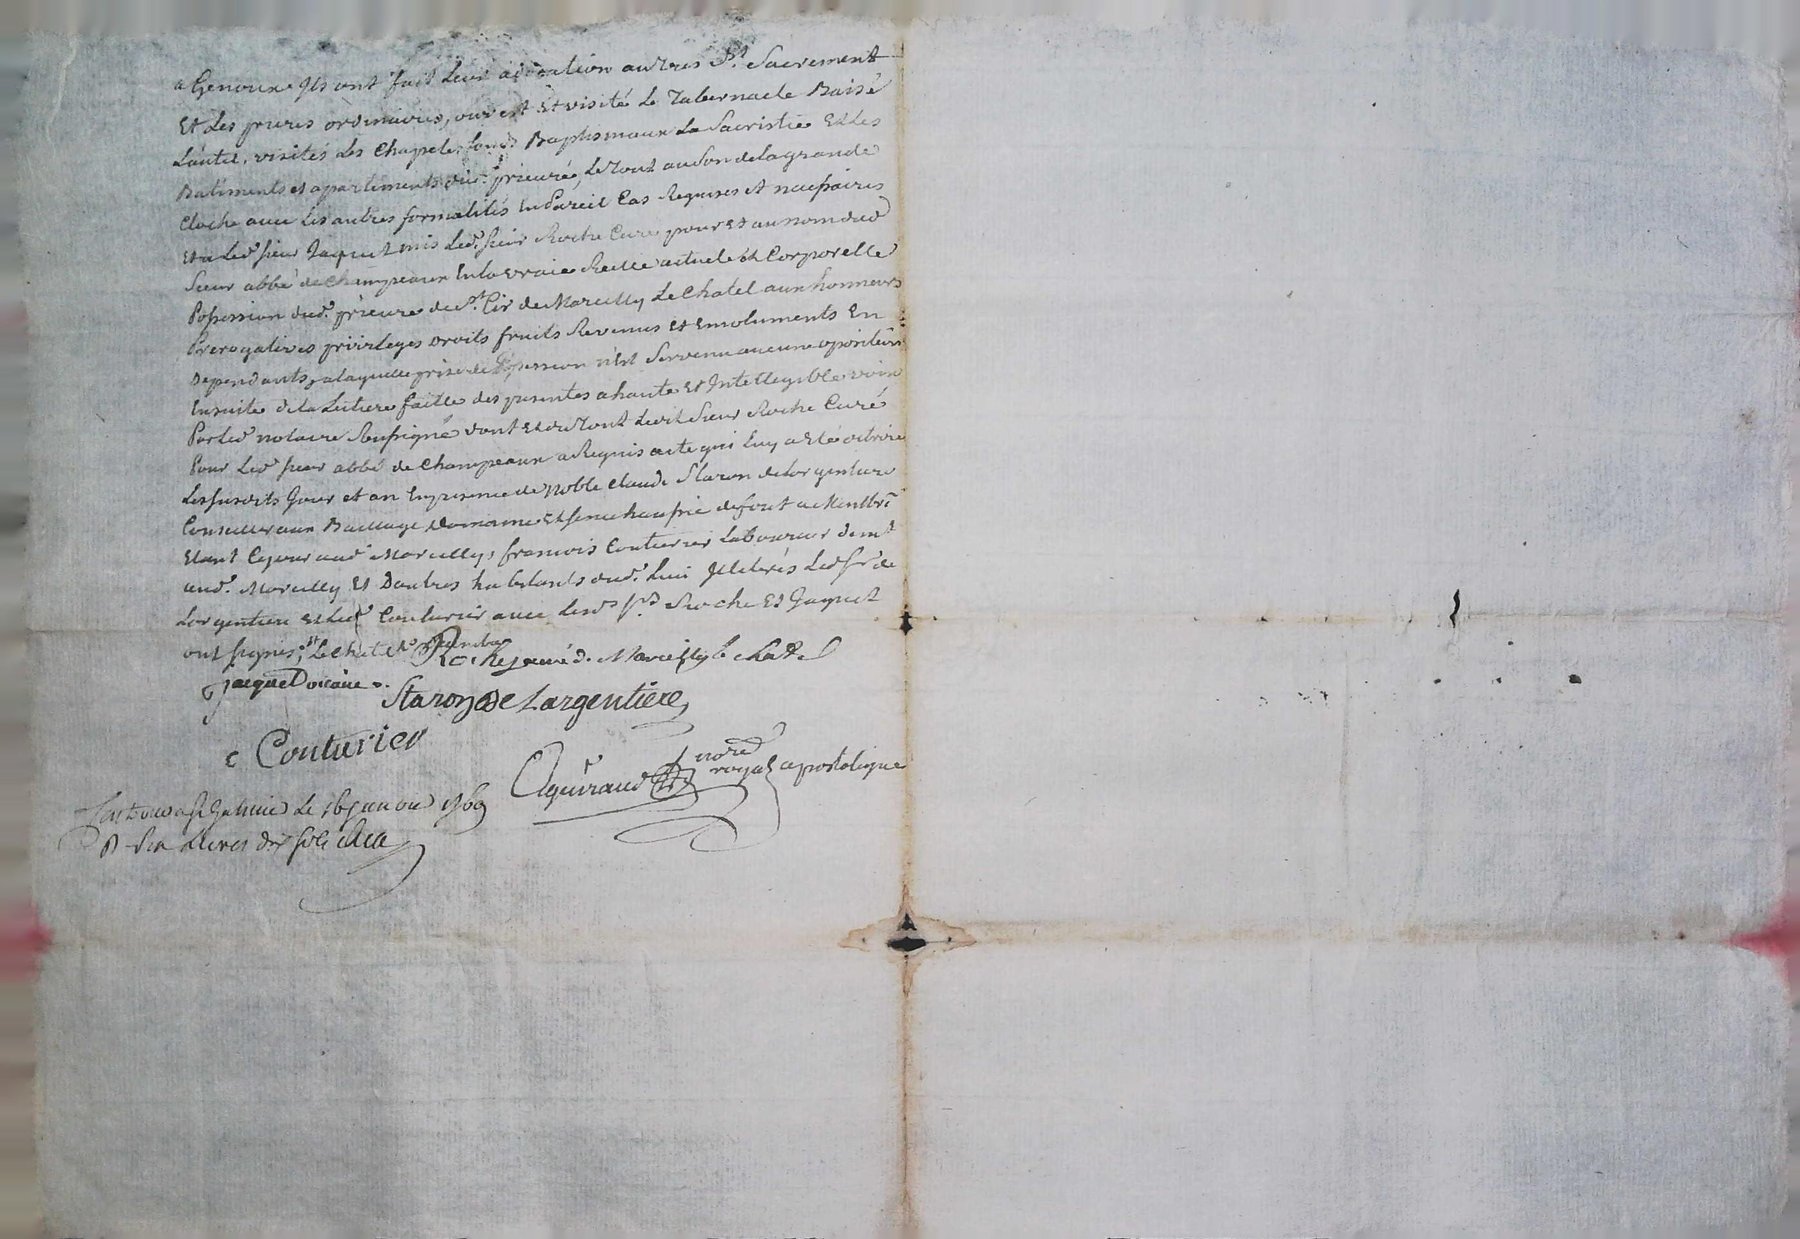 a Genoux Ils ont fait leur adoration au tres St. Sacrement
Et Les prieres ordinaires, ouvert Et visité Le Tabernacle Baisé
L'autel, visités Les Chapeles fonds Baptismaux La Sacristie Et Les
Batiments et apartiments dud. prieuré, Le tout au Son de la grande
Cloche avec Les autres formalités En Pareil Cas Requises et necessaires
Et a Led. sieur Jaquet mis Led. sieur Roche Curé pour Et au nom dud
Sieur abbé de Champeaux En la vraie Reelle actuele et Corporelle
Possession dud. prieuré de St. Cir de Marcilly Le Chatel aux honneurs
Prerogatives privileges droits fruits Revenus Et Emoluments En
Dependants, a laquelle prise de Possession n'est Servenu aucune oposition
Ensuite de la Lecture faitte des presentes a haute Et Intellegible voix
Par Led notaire Soussigné dont Et du tout Ledit Sieur Roche Curé
Pour Led. sieur abbé de Champeaux a Requis acte qui Luy a Eté octroié
Les susdits Jour et an En presence de Noble Claude Staron de Largentiere
Conseiller aux Bailliage Domaine Et Senechaussée de foret a Montbr.
Etant Cejour aud. Marcilly, francois Couturier Laboureur dem.t
aud. Marcilly Et D'autres habitants dud. Lieu Illiterés Led Sr. de
Largentiere Et Led. Couturier avec Lesd. Srs. Roche Et Jaquet
ont signés
Roche curé de Marcilly le chatel
Jaquet vicaire
Staron de Largentiere
c Couturier
Aguiraud nore
royal apostolique
le 16 janvier 1769